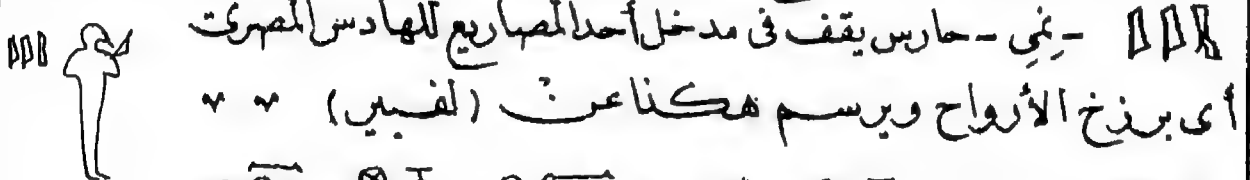 - نمى - حارس يقف فى مدخل أحد المصاريع للهادس المصرى
أى برزخ الأرواح ويرسم هكذا عن (لفبير) " "